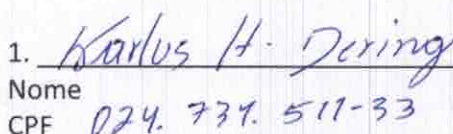 1. Karlus H. Dering
Nome
CPF 024. 734. 511-33